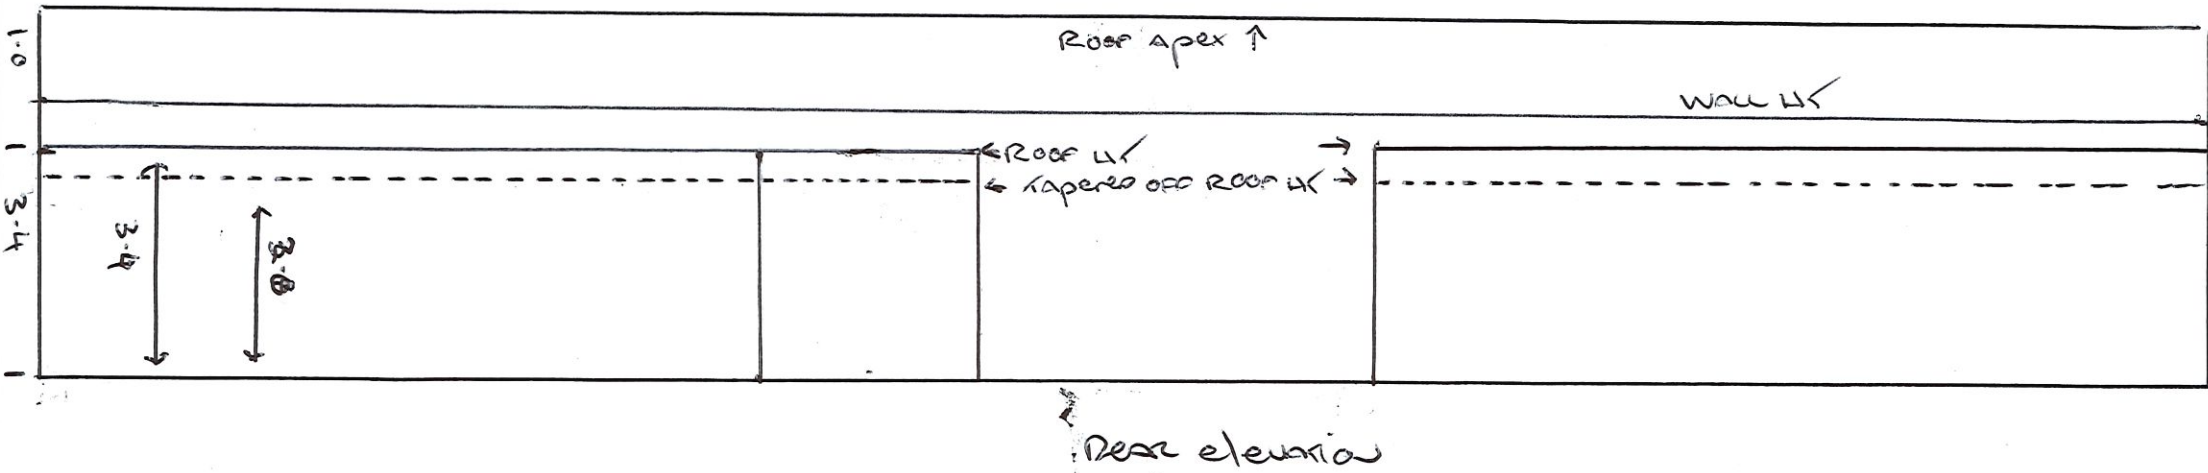 1.0
ROOF Apex ↑
WALL HT
← ROOF HT →
← TAPERED OFF ROOF HT →
3.4
3.4
Rear elevation